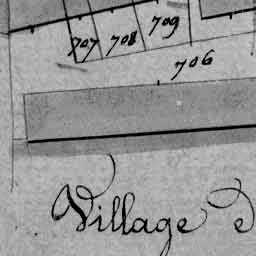 707 708 709
706
Village d